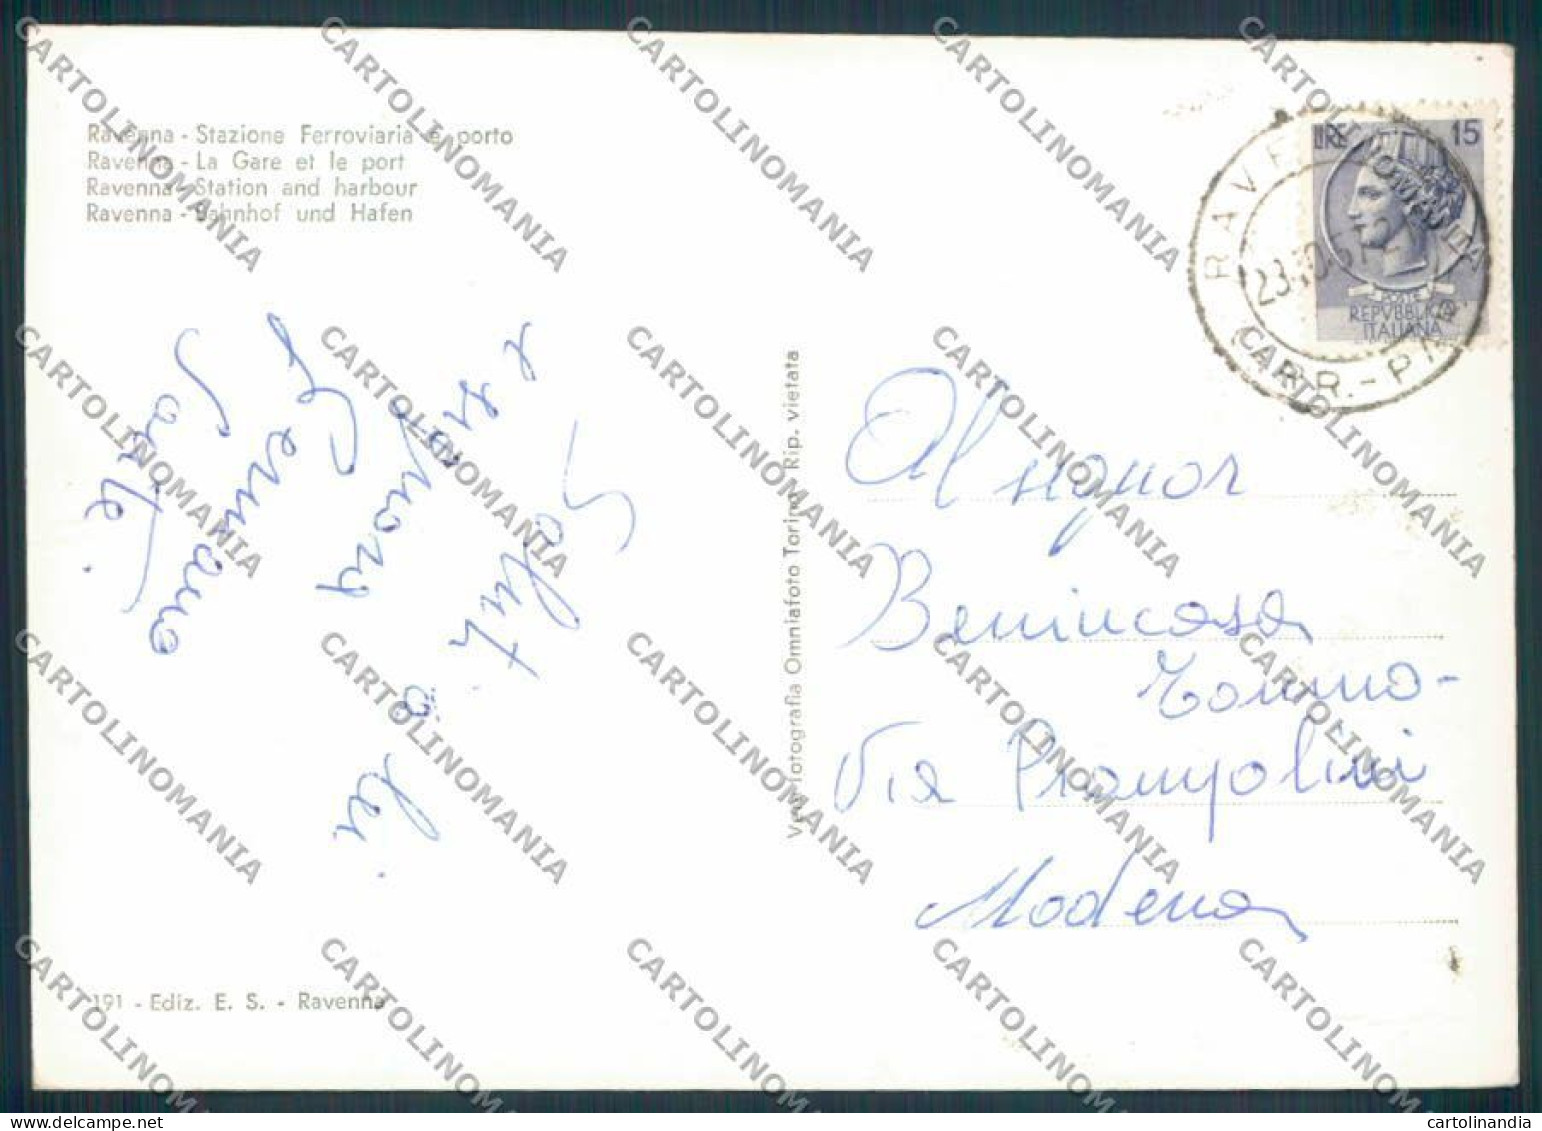 Ravenna - Stazione Ferroviaria e porto
Ravenna - La Gare et le port
Ravenna - Station and harbour
Ravenna - Bahnhof und Hafen
Saluti a lei
e signora
Germano
191 - Ediz. E. S. - Ravenna
Vera fotografia Omniafoto Torino Rip. vietata
LIRE 15
POSTE
REPVBBLICA
ITALIANA
CARR.-P
Al signor
Benincasa
Tommo-
Via Prampolini
Modena
CARTOLINOMANIA
cartolinandia